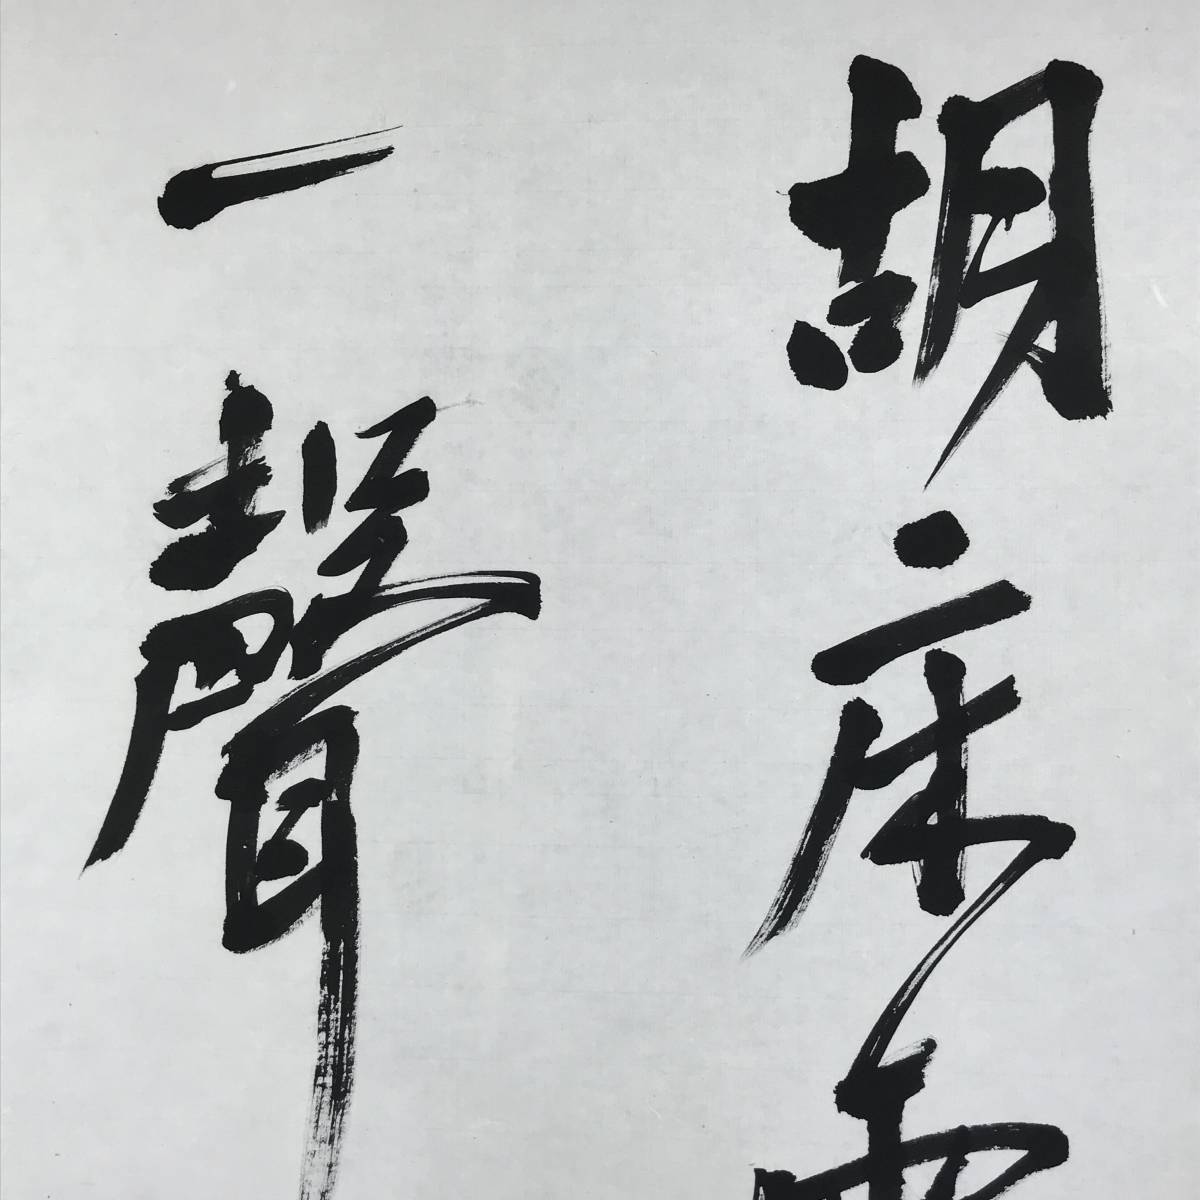 胡床
一聲